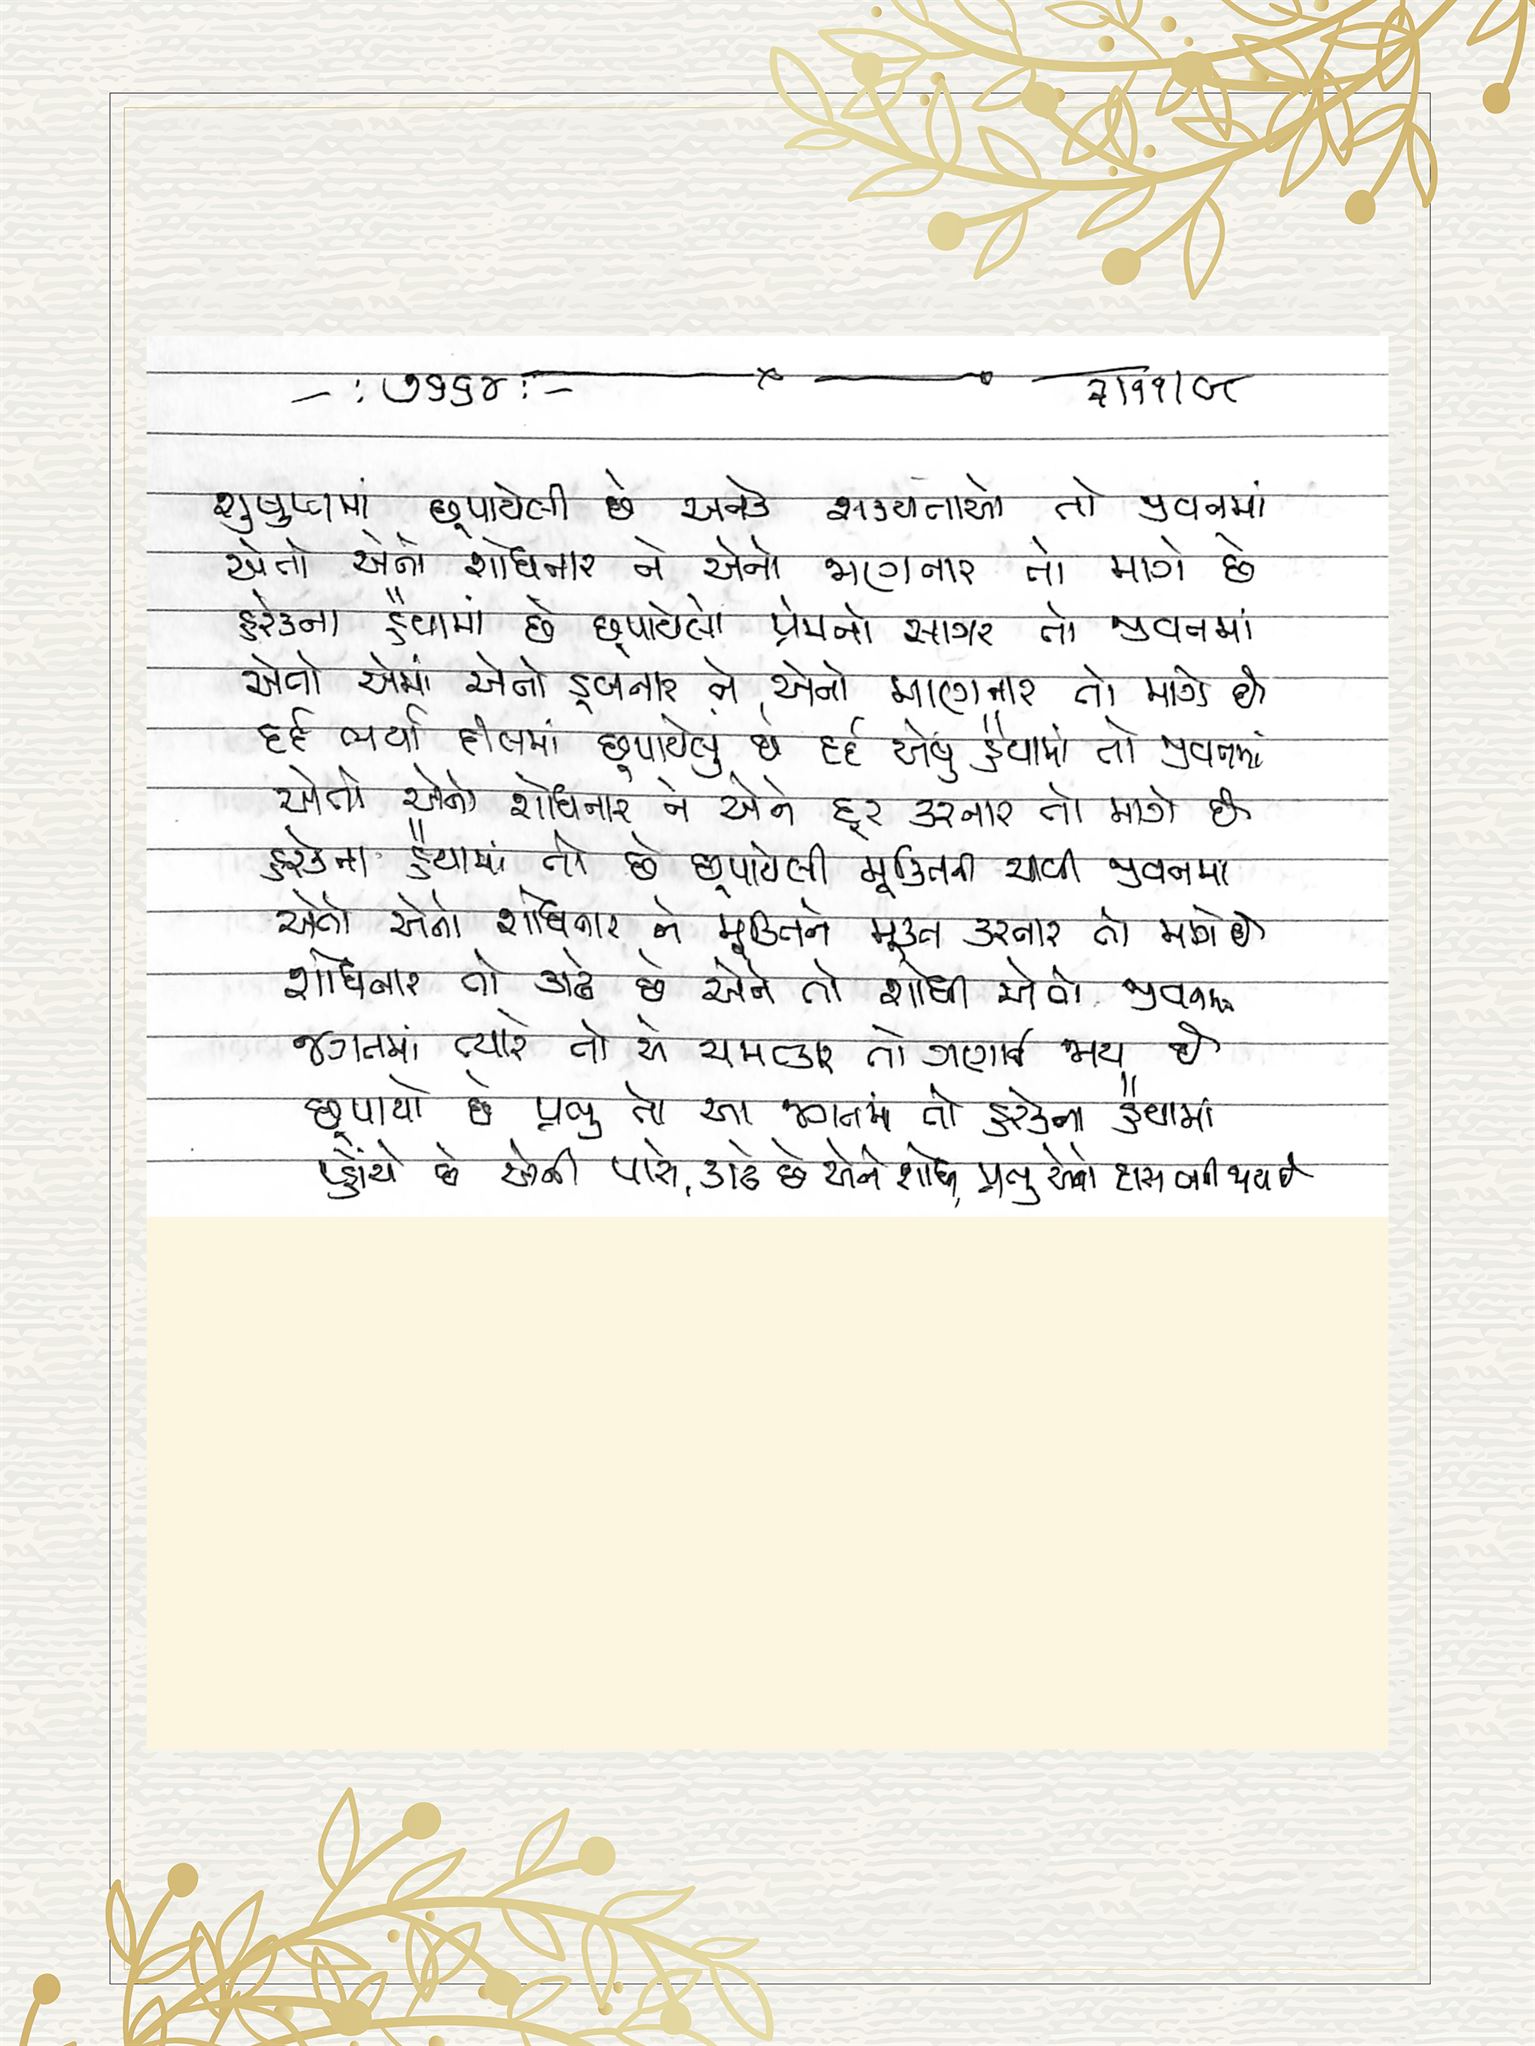 -: ૭૬૬૪ :-
શુષુપ્તમાં છૂપાયેલી છે અનેક શક્યતાઓ તો જીવનમાં
એતો એનો શોધનાર ને એનો જાણનાર તો માગે છે
હરેકના હૈયામાં છે છૂપાયેલો પ્રેમનો સાગર તો જીવનમાં
એતો એમાં એનો ડૂબનાર ને એનો માણનાર તો માગે છે
દર્દ ભર્યા દીલમાં છૂપાયેલું છે દર્દ એવું હૈયામાં તો જીવનમાં
એતો એનો શોધનાર ને એને દૂર કરનાર તો માગે છે
હરેકના હૈયામાં તો છે છૂપાયેલી મૂક્તિની ચાવી જીવનમાં
એતો એનો શોધનાર ને મૂક્તિને મૂક્ત કરનાર તો માગે છે
શોધનાર તો કાઢે છે એને તો શોધી એવો જીવનમાં
જગતમાં ત્યારે તો એ ચમત્કાર તો ગણાઈ જાય છે
છૂપાયો છે પ્રભુ તો આ જગતમાં તો હરેકના હૈયામાં
પ્હોંચે છે એની પાસે, કાઢે છે એને શોધી, પ્રભુ એનો દાસ બની જાય છે